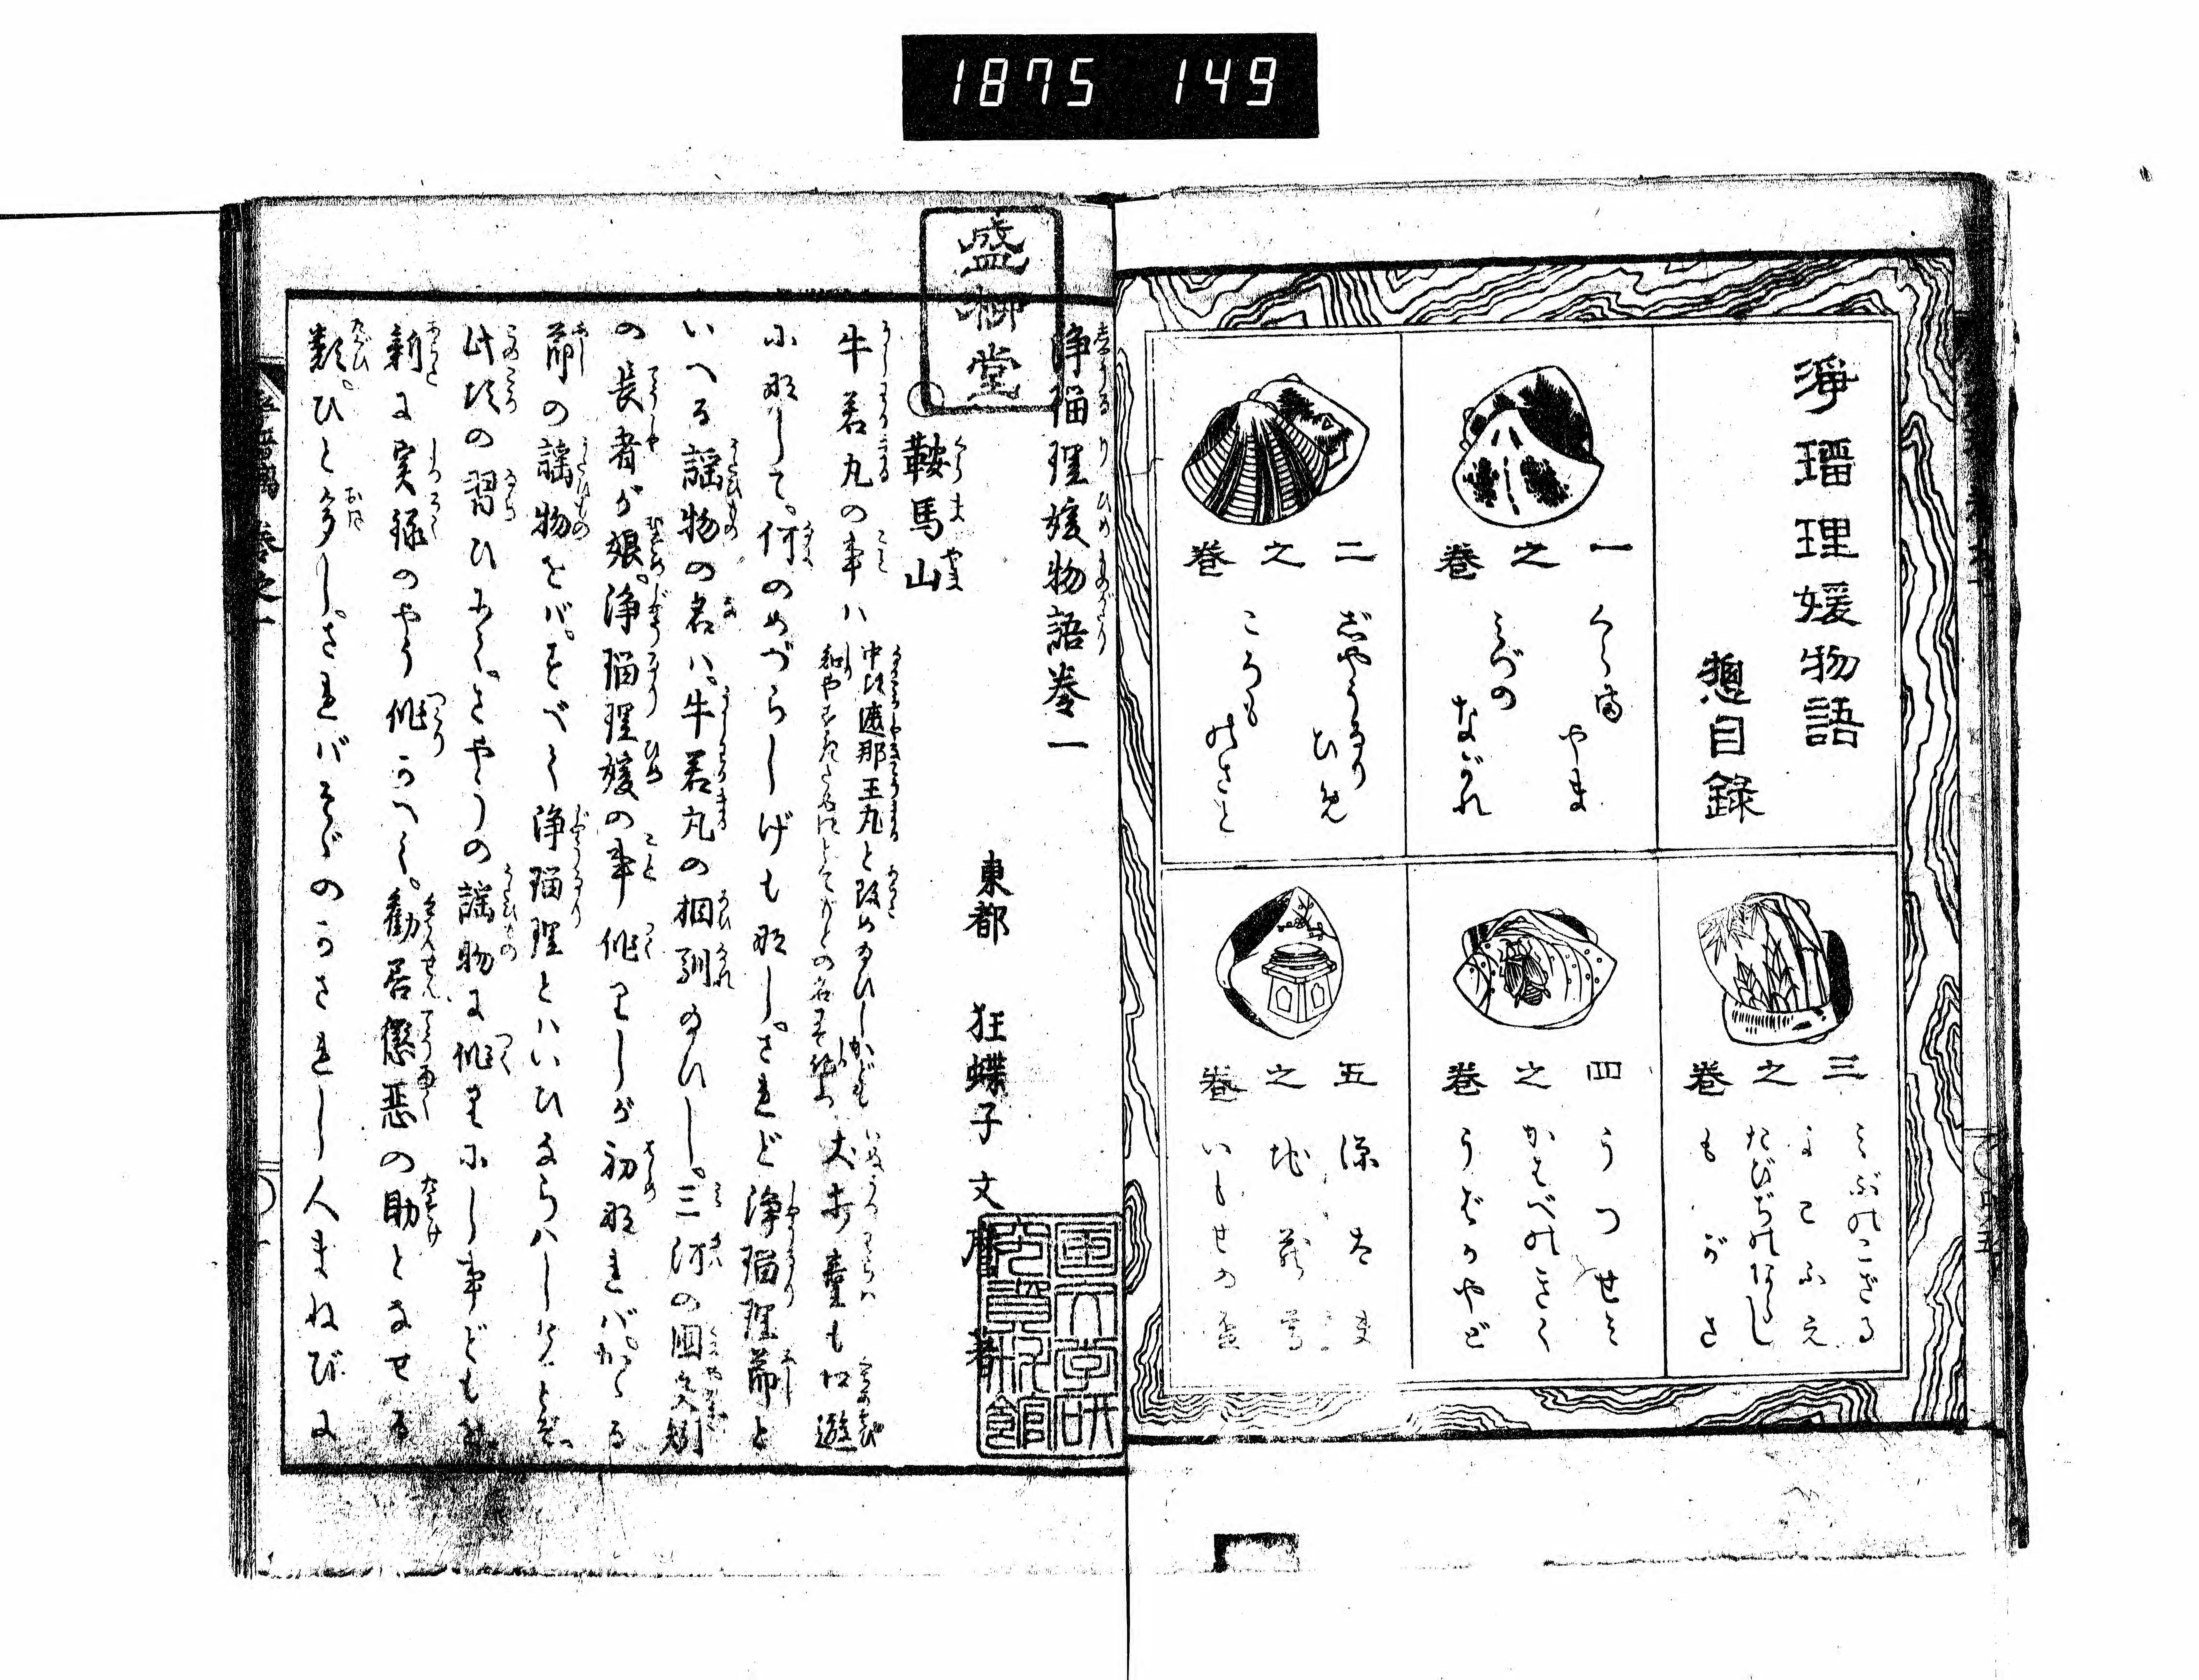 1875 149
淨瑠理媛物語
惣目録
一之巻
くらま
やま
みづの
ながれ
二之巻
じやうるり
ひめ
ころも
のさと
三之巻
みぶのこざる
よこふえ
たびぢのなごし
もがさ
四之巻
うつせみ
かはべのきく
うぢのやど
五之巻
いもせの
盛柳堂
浄瑠理媛物語巻一
東都 狂蝶子文麿著
国文学研究資料館
鞍馬山
牛若丸の事ハ
中比遮那王丸と改め給ひしかども
犬打童も口遊
に那して。何のめづらしげも那し。されど浄瑠理節と
いへる謡物の名ハ。牛若丸の相馴給ひし。三河の国矢矧
の長者が娘。浄瑠理媛の事作りしが初那れバ。かゝる
節の謡物をバ。すべて浄瑠理とハいひならハしけるとぞ。
此比の習ひにて。さやうの謡物に作りにし事どもを。
新に実録のやう作りかへて。勧善懲悪の助となせる
類。ひと多し。さればそゞのかされし人まねびに